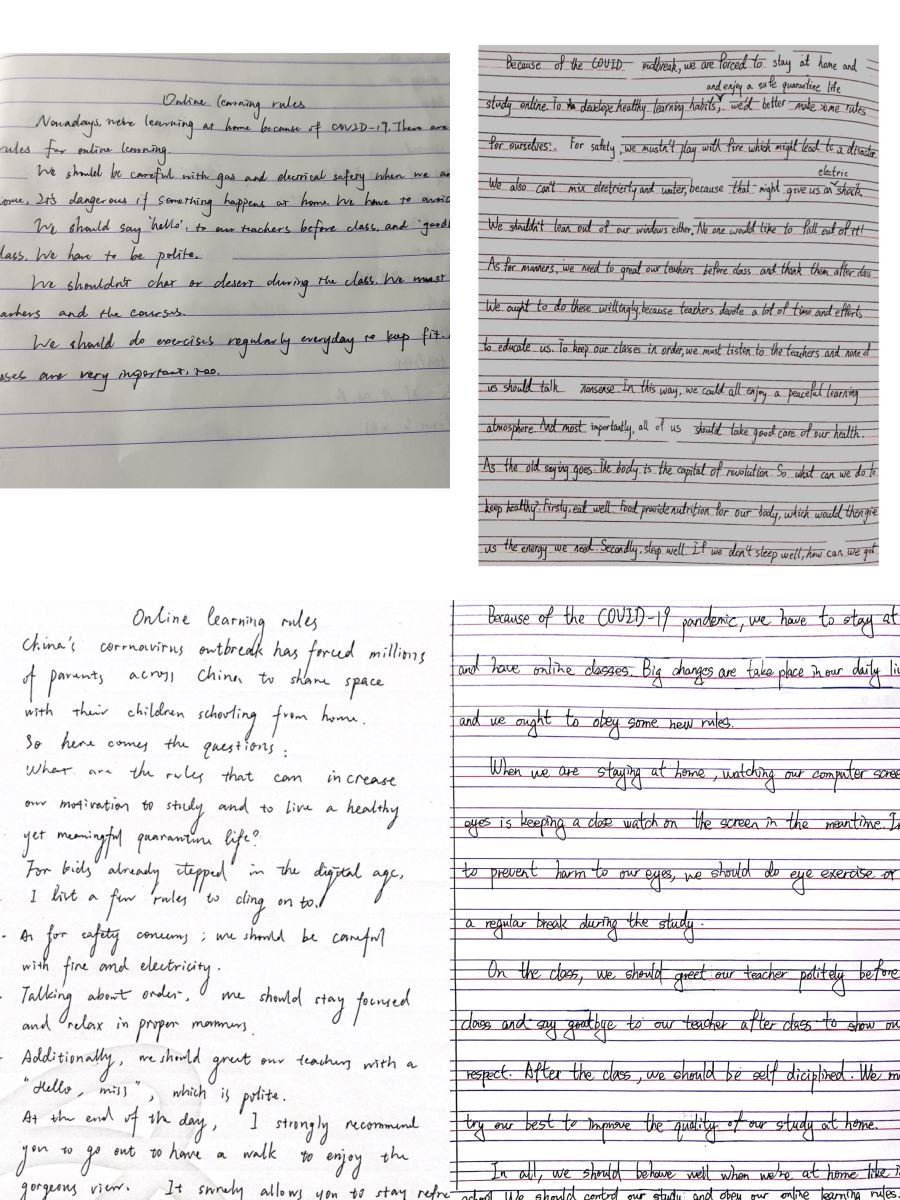 Online learning rules
Nowadays, we're learning at home because of COVID-19. There are
rules for online learning.
We should be careful with gas and electrical safety when we ar
ome. It's dangerous if something happens at home. We have to avoid
We should say 'hello', to our teachers before class, and 'good
lass. We have to be polite.
We shouldn't chat or desert during the class. We must
achers and the courses.
We should do exercises regularly everyday to keep fit.
ses are very important, too.
Because of the COVID outbreak, we are forced to stay at home and
and enjoy a safe quarantine life
study online. To develope healthy learning habits, we'd better make some rules
for ourselves:. For safety, we mustn't play with fire which might lead to a disaster.
electric
We also can't mix electricity and water, because that might give us an shock.
We shouldn't lean out of our windows either, No one would like to fall out of it!
As for manners, we need to great our teachers before class and thank them after class
We ought to do these willingly, because teachers devote a lot of time and efforts
to educate us. To keep our classes in order, we must listen to the teachers and none of
us should talk nonsense. In this way, we could all enjoy a peaceful learning
atmosphere. And most importantly, all of us should take good care of our health.
As the old saying goes: The body is the capital of revolution. So what can we do to
keep healthy? Firstly, eat well. Food provide nutrition for our body, which would then give
us the energy we need. Secondly, sleep well. If we don't sleep well, how can we get
Online learning rules
China's cornnavirus outbreak has forced millions
of parents across China to share space
with their children schooling from home.
So here comes the questions:
What are the rules that can increase
our motivation to study and to live a healthy
yet meaningful quarantine life?
For kids already stepped in the digital age,
I list a few rules to cling on to.
· As for safety concerns; we should be careful
with fire and electricity.
· Talking about order, we should stay focused
and relax in proper manners.
· Additionally, we should greet our teachers with a
"Hello, miss", which is polite.
At the end of the day, I strongly recommend
you to go out to have a walk to enjoy the
gorgeous view. It surely allows you to stay refre
Because of the COVID-19 pandemic, we have to stay at
and have online classes. Big changes are take place in our daily li
and we ought to obey some new rules.
When we are staying at home, watching our computer scree
eyes is keeping a close watch on the screen in the meantime. In
to prevent harm to our eyes, we should do eye exercise or
a regular break during the study.
On the class, we should greet our teacher politely before
class and say goodbye to our teacher after class to show ou
respect. After the class, we should be self diciplined. We m
try our best to improve the quality of our study at home.
In all, we should behave well when we're at home like is
We should control our study and obey our online learning rules.